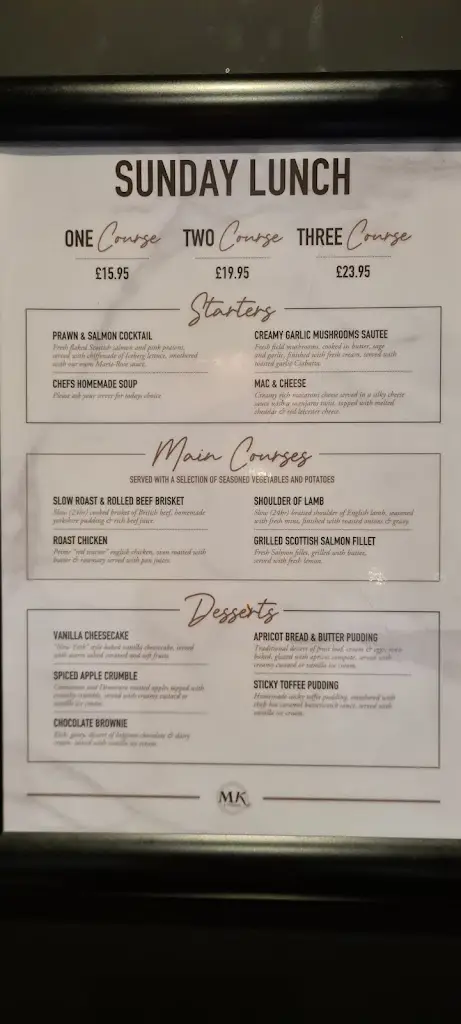 SUNDAY LUNCH
ONE Course TWO Course THREE Course
£15.95 £19.95 £23.95
Starters
PRAWN & SALMON COCKTAIL
Fresh flaked Scottish salmon and pink prawns,
served with chiffonade of Iceberg lettuce, smothered
with our own Marie-Rose sauce.
CHEFS HOMEMADE SOUP
Please ask your server for todays choice
CREAMY GARLIC MUSHROOMS SAUTEE
Fresh field mushrooms, cooked in butter, sage
and garlic, finished with fresh cream, served with
toasted garlic Ciabatta.
MAC & CHEESE
Creamy rich macaroni cheese served in a silky cheese
sauce with a twist, topped with melted
cheddar & red leicester cheese.
Main Courses
SERVED WITH A SELECTION OF SEASONED VEGETABLES AND POTATOES
SLOW ROAST & ROLLED BEEF BRISKET
Slow (24hr) cooked brisket of British beef, homemade
yorkshire pudding & rich beef juice.
ROAST CHICKEN
Prime "red tractor" english chicken, oven roasted with
butter & rosemary served with pan juices.
SHOULDER OF LAMB
Slow (24hr) braised shoulder of English lamb, seasoned
with fresh mint, finished with roasted onions & gravy.
GRILLED SCOTTISH SALMON FILLET
Fresh Salmon fillet, grilled with butter,
served with fresh lemon.
Desserts
VANILLA CHEESECAKE
"New York" style baked vanilla cheesecake, served
with warm salted caramel and soft fruits.
SPICED APPLE CRUMBLE
Cinnamon and Demerara roasted apples topped with
crumble, served with creamy custard or
vanilla ice cream.
CHOCOLATE BROWNIE
Rich, gooey dessert of belgium chocolate & dairy
cream, served with vanilla ice cream.
APRICOT BREAD & BUTTER PUDDING
Traditional dessert of fruit loaf, cream & eggs, oven
baked, glazed with apricot compote, served with
creamy custard or vanilla ice cream.
STICKY TOFFEE PUDDING
Homemade sticky toffee pudding, smothered with
thick hot caramel butterscotch sauce, served with
vanilla ice cream.
MK